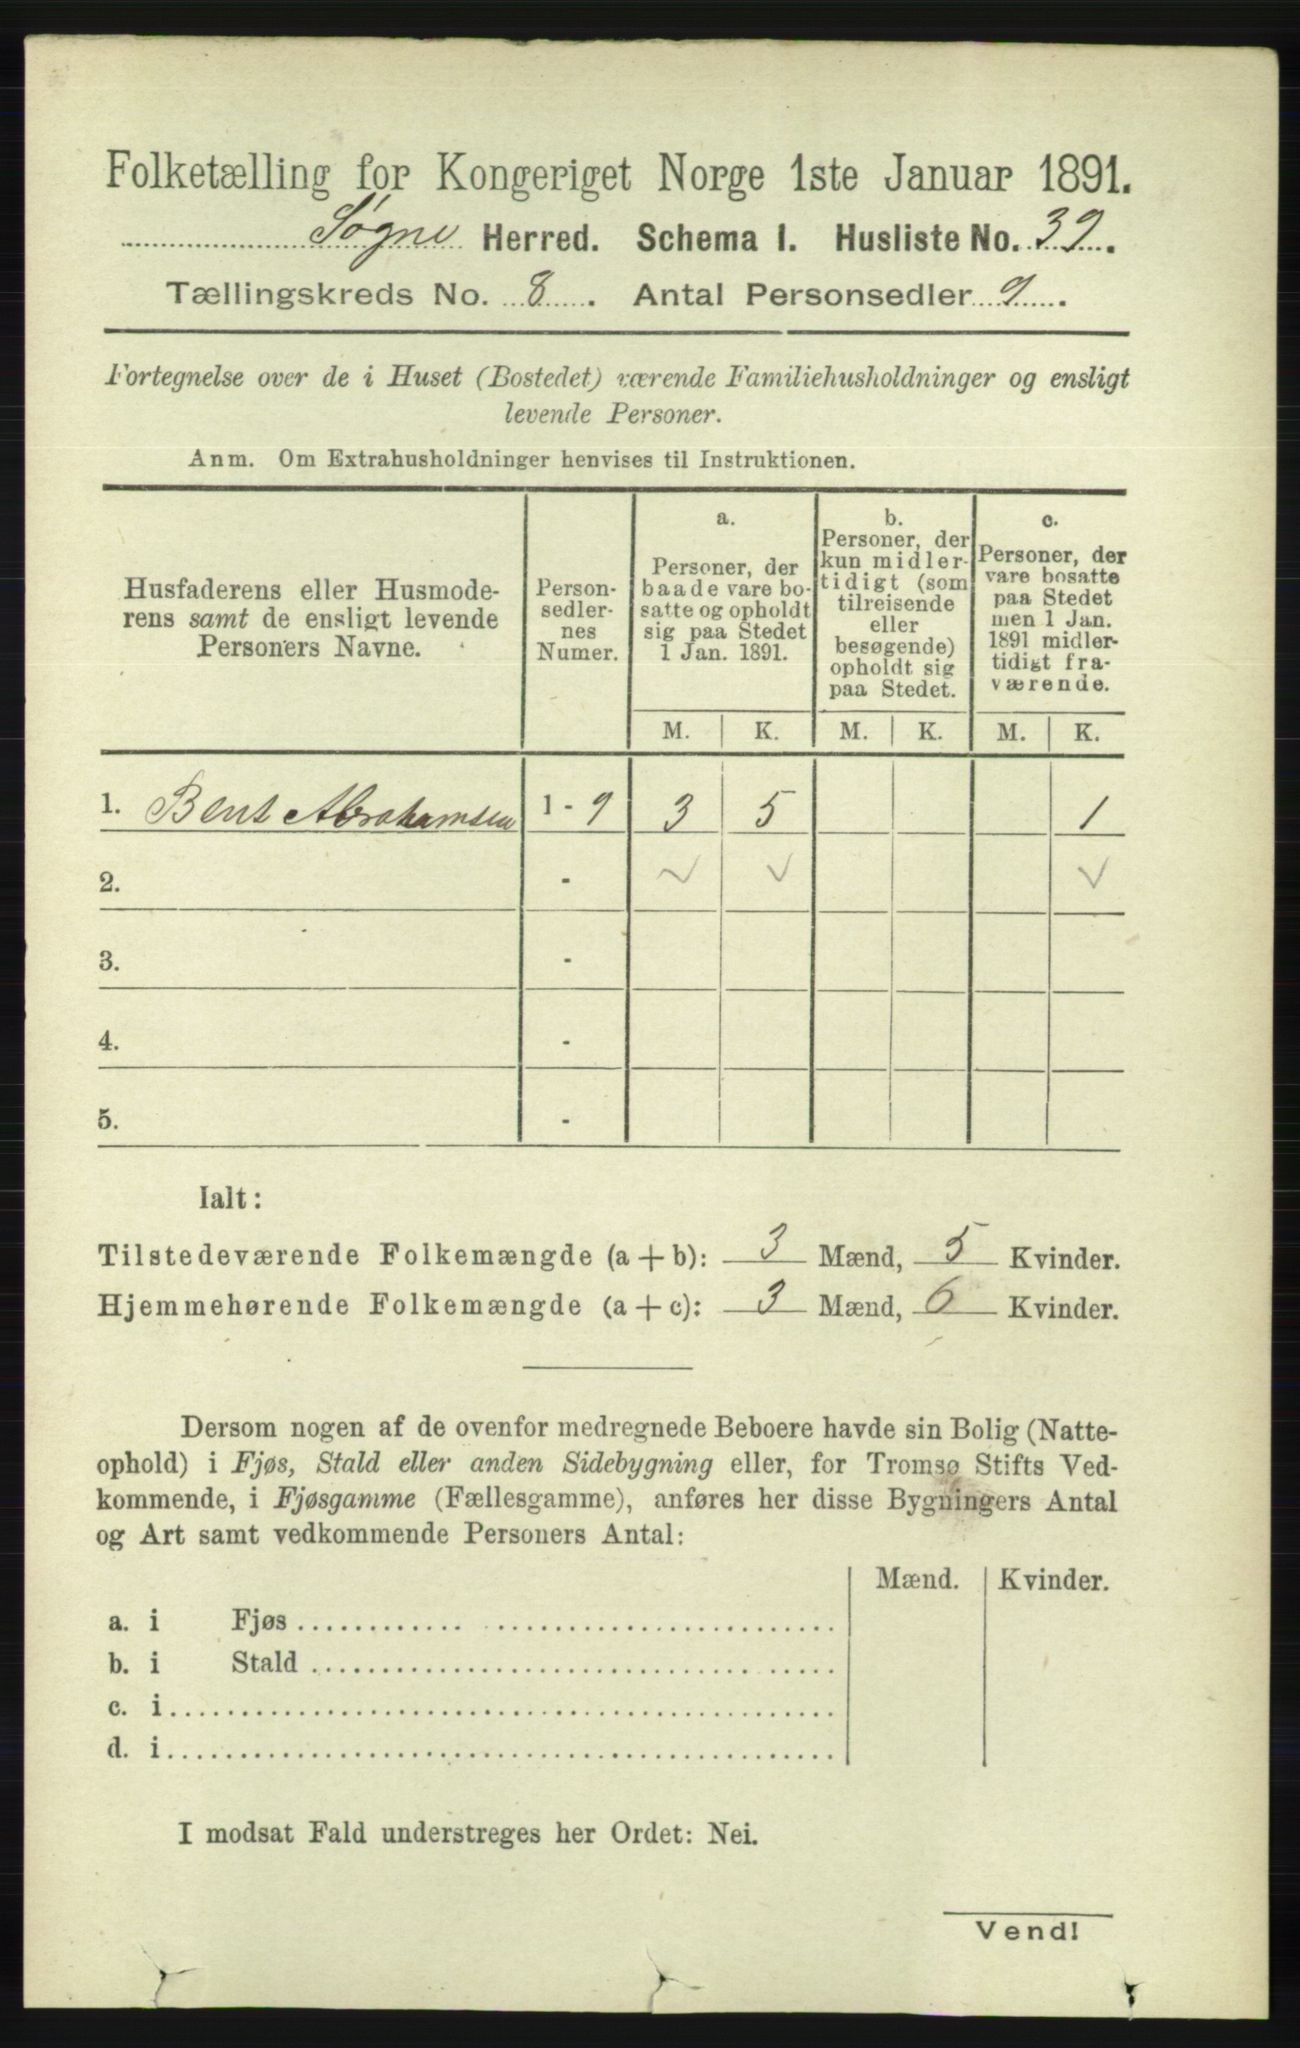 Folketælling for Kongeriget Norge 1ste Januar 1891.
Søgne Herred. Schema I. Husliste No. 39.
Tællingskreds No. 8. Antal Personsedler 9.
Fortegnelse over de i Huset (Bostedet) værende Familiehusholdninger og ensligt
levende Personer.
Anm. Om Extrahusholdninger henvises til Instruktionen.
Husfaderens eller Husmode-
rens samt de ensligt levende
Personers Navne.
Person-
sedler-
nes
Numer.
a.
Personer, der
baade vare bo-
satte og opholdt
sig paa Stedet
1 Jan. 1891.
b.
Personer, der
kun midler-
tidigt (som
tilreisende
eller
besøgende)
opholdt sig
paa Stedet.
c.
Personer, der
vare bosatte
paa Stedet
men 1 Jan.
1891 midler-
tidigt fra-
værende.
M. K. M. K. M. K.
1. Bent Abrahamsen 1 - 9 3 5 1
2. -
3. -
4. -
5. -
Ialt:
Tilstedeværende Folkemængde (a + b): 3 Mænd, 5 Kvinder.
Hjemmehørende Folkemængde (a + c): 3 Mænd, 6 Kvinder.
Dersom nogen af de ovenfor medregnede Beboere havde sin Bolig (Natte-
ophold) i Fjøs, Stald eller anden Sidebygning eller, for Tromsø Stifts Ved-
kommende, i Fjøsgamme (Fællesgamme), anføres her disse Bygningers Antal
og Art samt vedkommende Personers Antal:
Mænd. Kvinder.
a. i Fjøs
b. i Stald
c. i
d. i
I modsat Fald understreges her Ordet: Nei.
Vend!